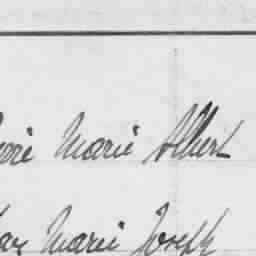 Marie Albert
Marie Joseph